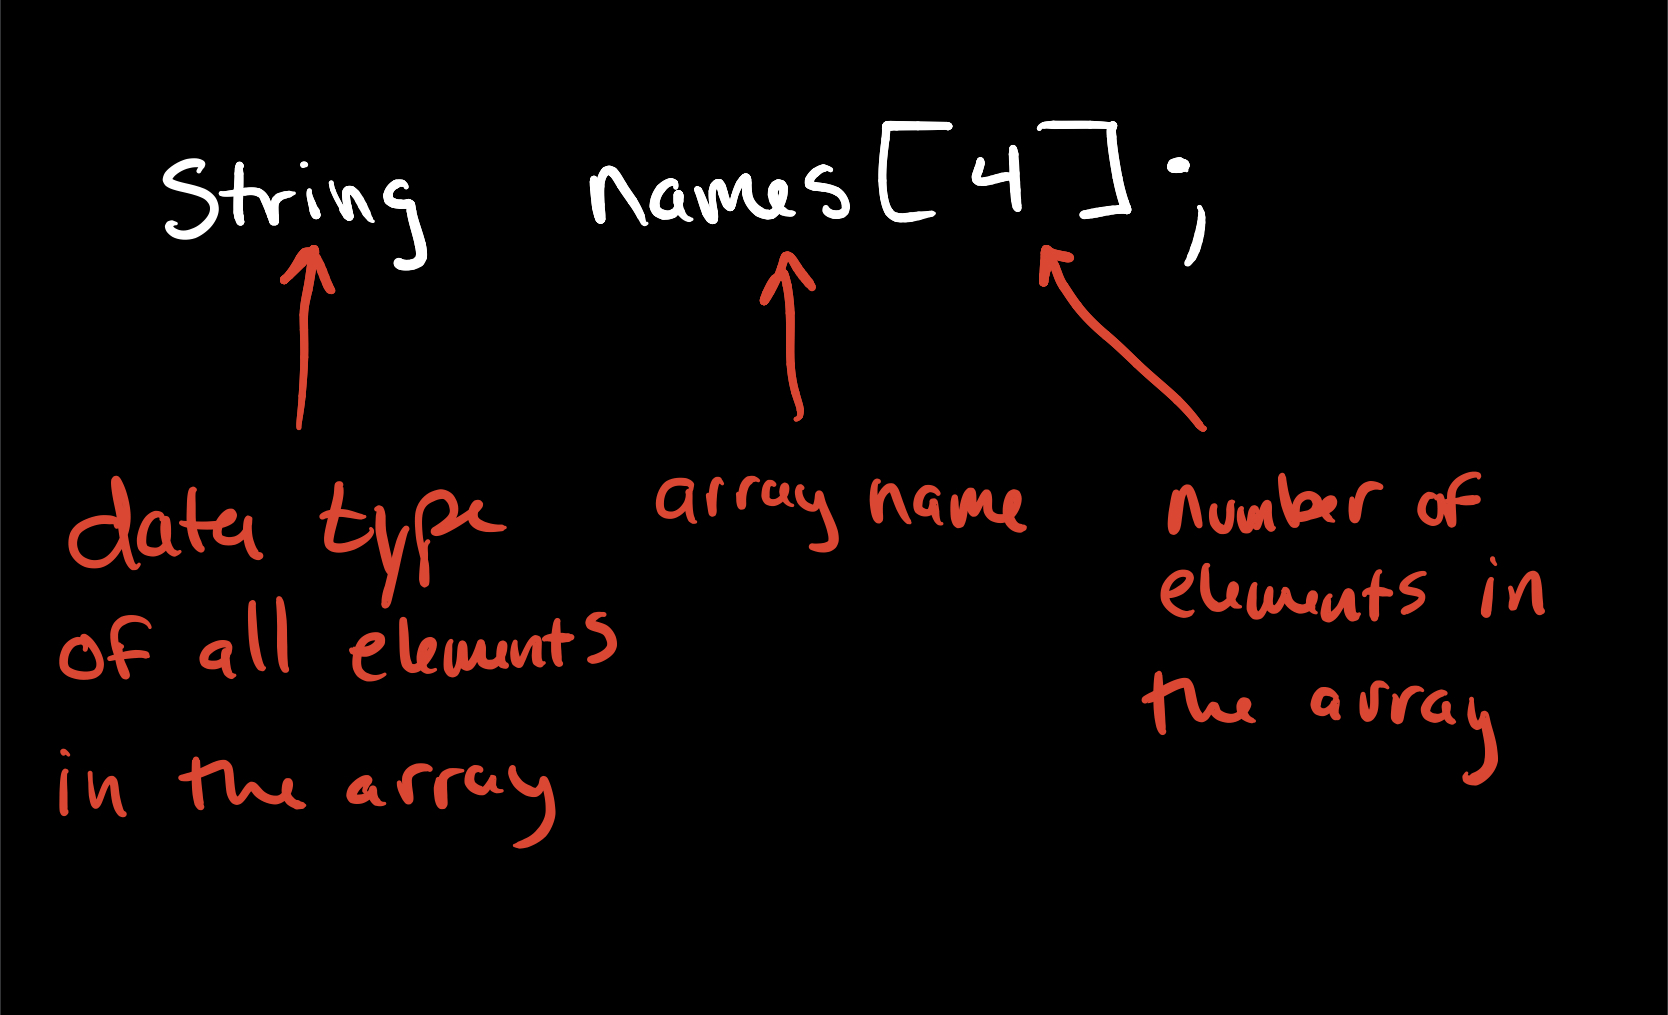 String names[4];
data type
of all elements
in the array
array name
number of
elements in
the array